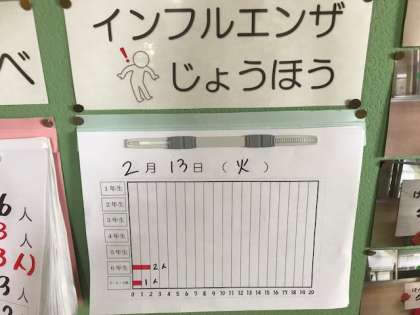 インフルエンザ
!
じょうほう
べ
2月13日（火）
1年生
2年生
3年生
4年生
5年生
6年生 2人
1人
0 1 2 3 4 5 6 7 8 9 10 11 12 13 14 15 16 17 18 19 20
6人
3人
人)
3人
人